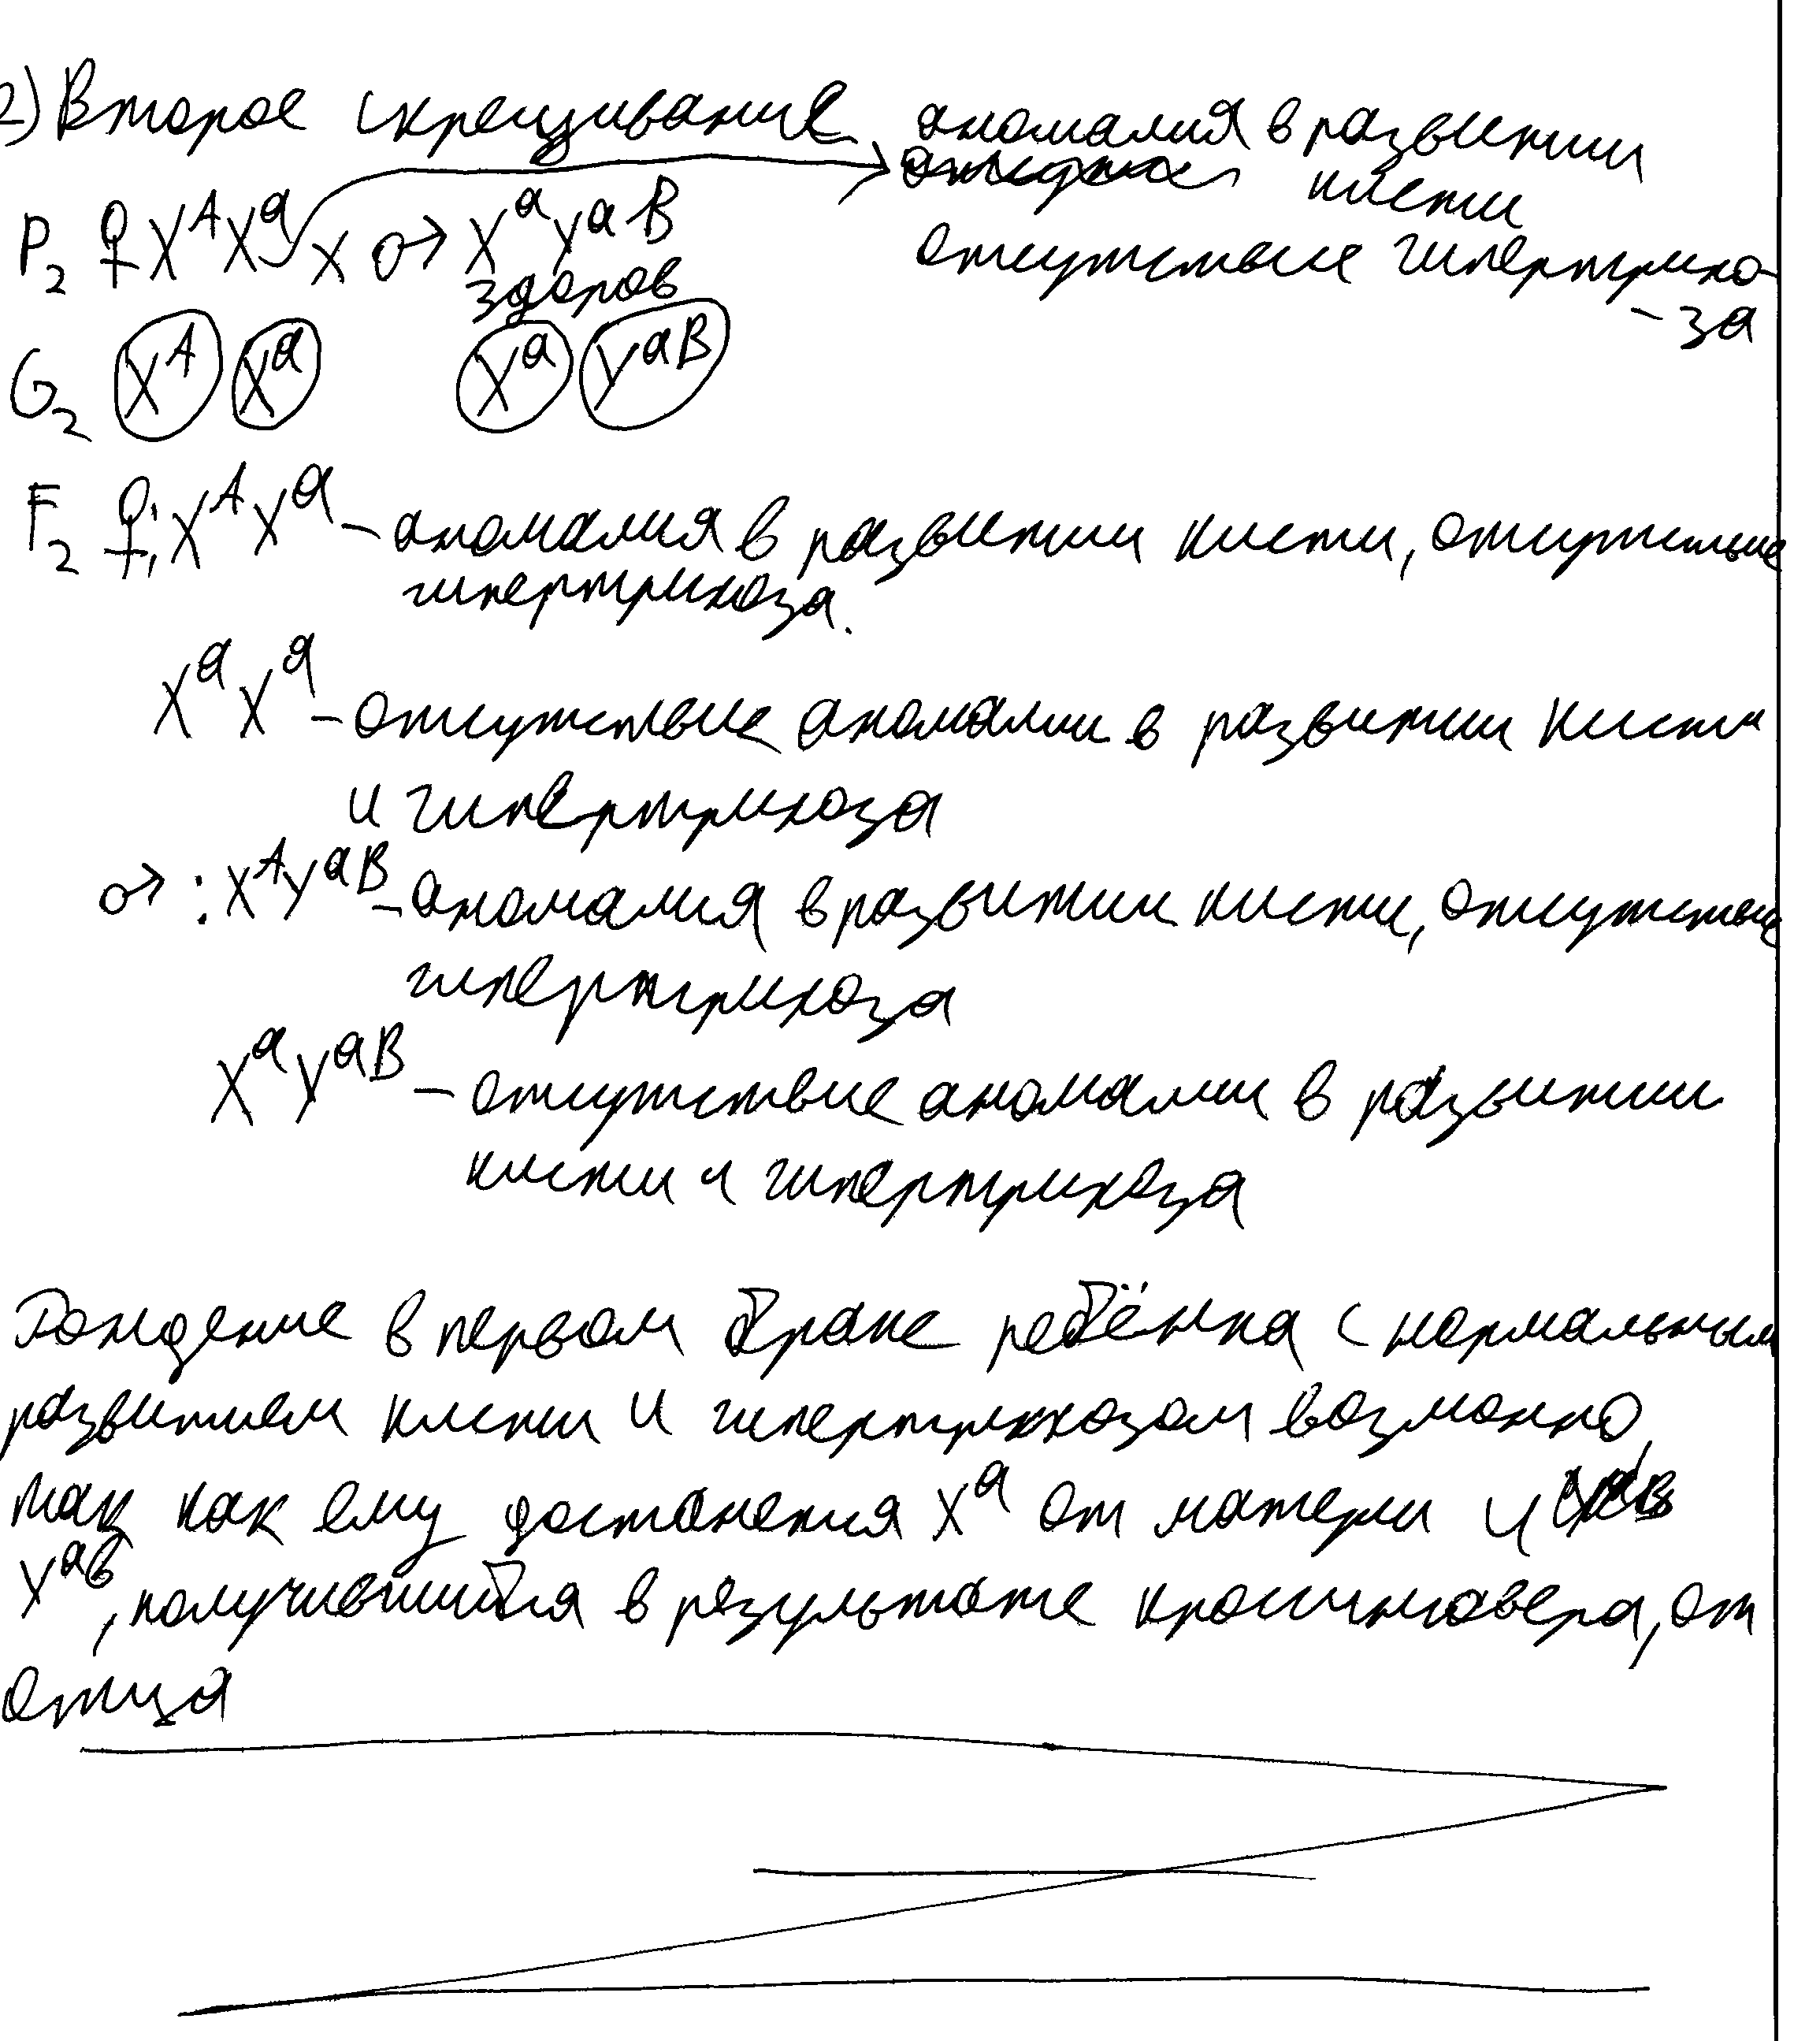 2) Второе скрещивание
аномалия в развитии
кисти
P₂ ♀ XᴬXᵃ x ♂ XᵃYᵃᴮ
здоров
отсутствие гипертрихо-
-за
G₂ Xᴬ Xᵃ Xᵃ Yᵃᴮ
F₂ ♀: XᴬXᵃ – аномалия в развитии кисти, отсутствие
гипертрихоза.
XᵃXᵃ – отсутствие аномалии в развитии кисти
и гипертрихоза
♂: XᴬYᵃᴮ – аномалия в развитии кисти, отсутствие
гипертрихоза
XᵃYᵃᴮ – отсутствие аномалии в развитии
кисти и гипертрихоза
Рождение в первом браке ребёнка с нормальным
развитием кисти и гипертрихозом возможно,
так как ему достанется Xᵃ от матери и
Yᵃᵇ, получившийся в результате кроссинговера, от
отца